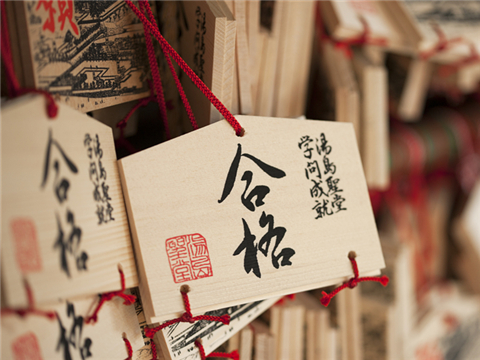 湯島聖堂
学問成就
合格
湯島
聖堂
学問成就
合格